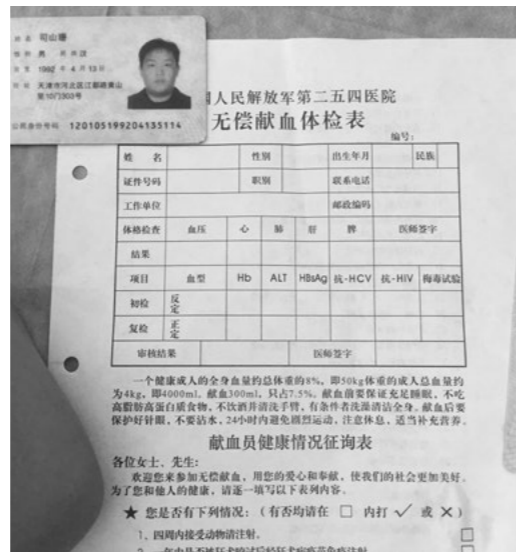 姓名 司山珊
性别 男 民族 汉
出生 1992 年 4 月 13 日
住址 天津市河北区江都路黄山
第10门303号
公民身份号码 120105199204135114
国人民解放军第二五四医院
无偿献血体检表
编号:
姓 名 性别 出生年月 民族
证件号码 职别 联系电话
工作单位 邮政编码
体格检查 血压 心 肺 肝 脾 医师签字
结果
项目 血型 Hb ALT HBsAg 抗-HCV 抗-HIV 梅毒试验
初检 反定
复检 正定
审核结果 医师签字
一个健康成人的全身血量约总体重的8%,即50kg体重的成人总血量约
为4kg,即4000ml,献血300ml,只占7.5%。献血前要保证充足睡眠,不吃
高脂肪高蛋白质食物,不饮酒并清洗手臂,有条件者洗澡清洁全身。献血后要
保护好针眼,不要沾水,24小时内避免剧烈运动,注意休息,适当补充营养。
献血员健康情况征询表
各位女士、先生:
欢迎您来参加无偿献血,用您的爱心和奉献,使我们的社会更加美好。
为了您和他人的健康,请逐一填写以下表列内容。
★ 您是否有下列情况:(有否均请在 □ 内打 ✓ 或 ×)
1、四周内接受动物清注射。 □